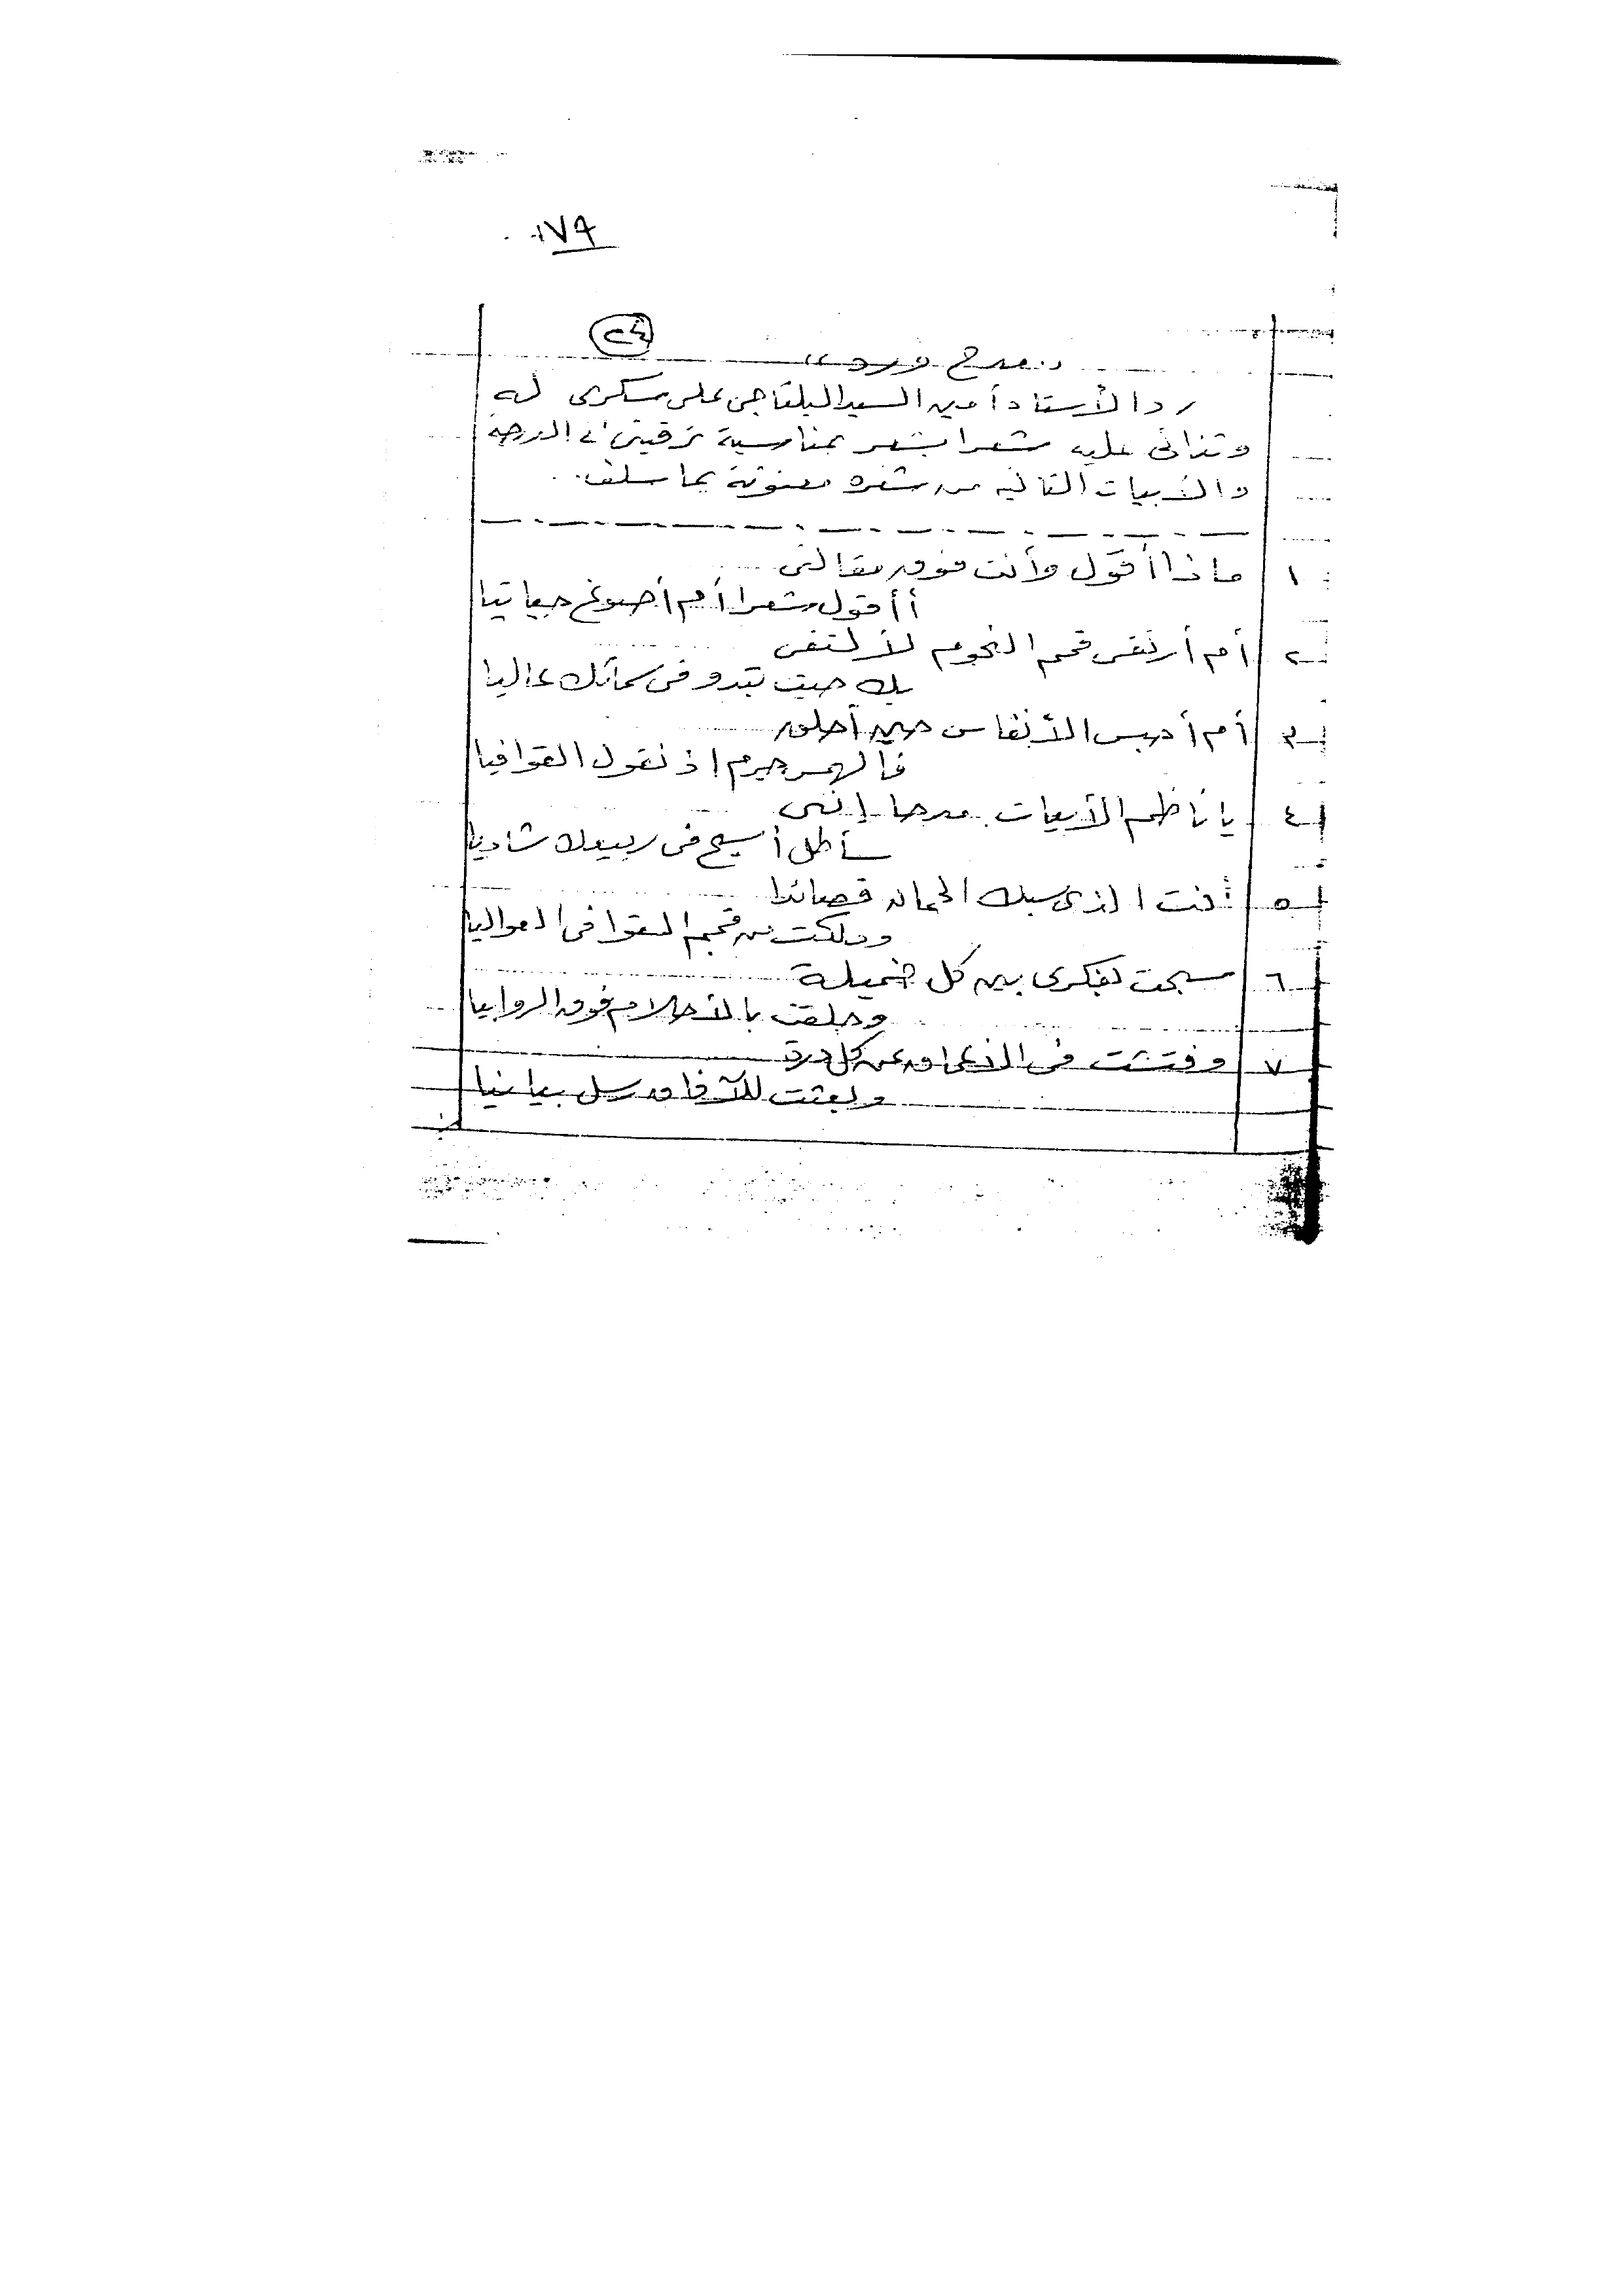 ١٧٩
٢٤
" مدح ورد "
رد الأستاذ أمين السيد البلتاجى على شكرى له
وثنائى عليه شعرا بشعر بمناسبة ترقيتى الى الدرجة
والأبيات التالية من شعره معنونة بما سلف ..
١ ماذا أقول وأنت فوق مقالتى
أأقول شعرا أم أصوغ حياتيا
٢ أم أرتقى قمم النجوم لألتقى
بك حيث تبدو فى سمائك عاليا
٣ أم أحبس الأنفاس حين أحلق
فالهمس جرم إذ نقول القوافيا
٤ يا ناظم الأبيات مدحا إننى
سأظل أسبح فى ربيعك شاديا
٥ أنت الذى سبك الجمان قصائدا
وملكت من قمم القوافى العواليا
٦ سبحت بفكرى بين كل خميلة
وحلقت بالأحلام فوق الروابيا
٧ وفتشت فى الأعماق عن كل درة
وبعثت للآفاق رسل بيانيا